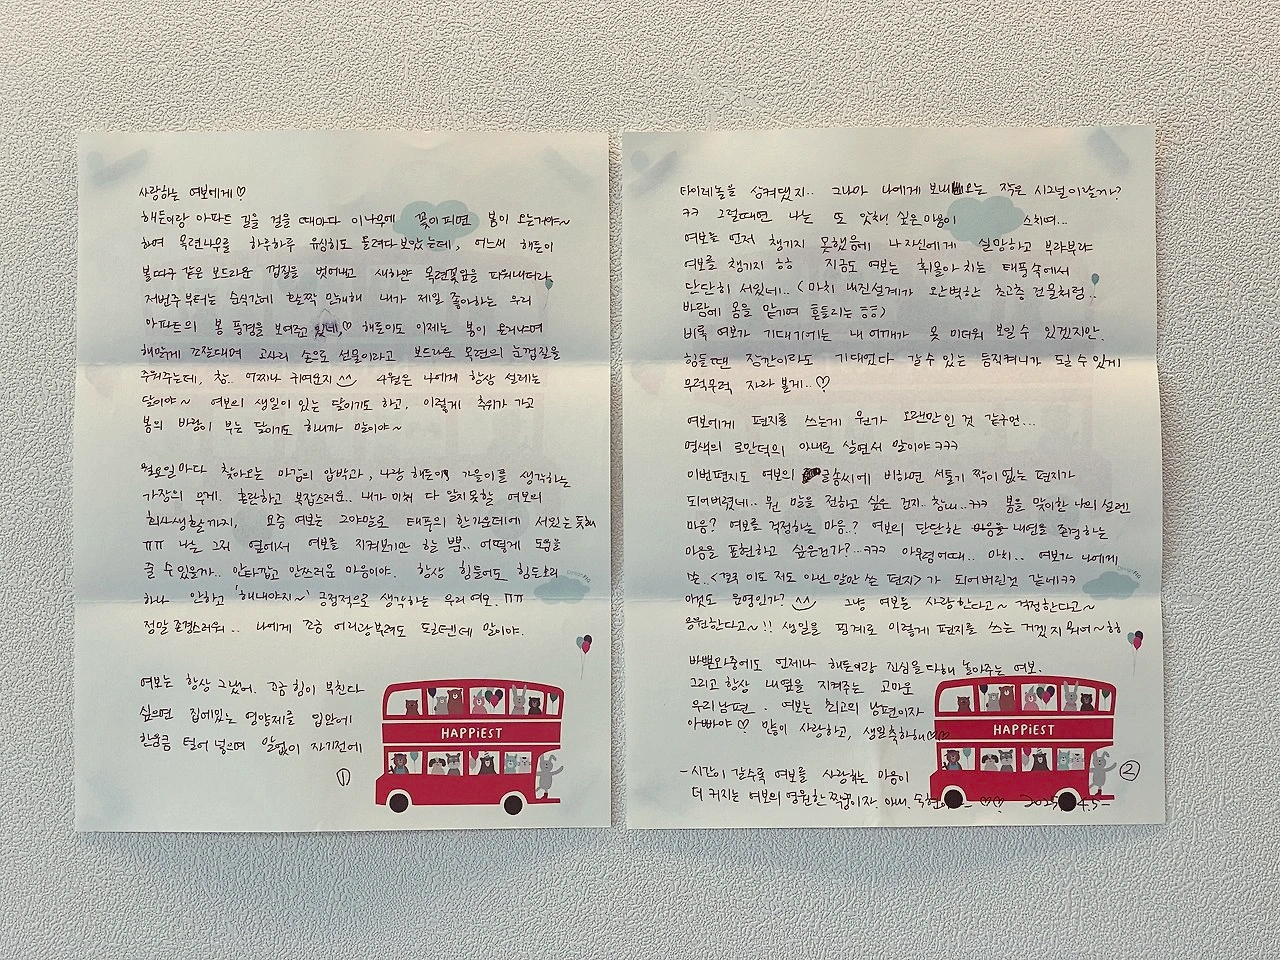 사랑하는 여보에게♡
해든이랑 아파트 길을 걸을 때마다 이나무에 꽃이 피면 봄이 오는거야~
하며 목련나무를 하루하루 유심히도 들여다 보았는데, 어느새 해든이
볼따구 같은 보드라운 껍질을 벗어내고 새하얀 목련꽃잎을 피워내더라
저번주부터는 순식간에 활짝 만개해 내가 제일 좋아하는 우리
아파트의 봄 풍경을 보여주고 있네,♡ 해든이도 이제는 봄이 온거냐며
해맑게 고사리 손으로 선물이라고 보드라운 목련의 눈껍질을
주워주는데, 참.. 어찌나 귀여운지^^ 4월은 나에게 항상 설레는
달이야~ 여보의 생일이 있는 달이기도 하고, 이렇게 추위가 가고
봄의 바람이 부는 달이기도 하니까 말이야~
월요일마다 찾아오는 마감의 압박과, 나랑 해든이 가을이를 생각하는
가장의 무게. 혼란하고 복잡스러운.. 내가 미처 다 알지 못할 여보의
회사생활까지, 요즘 여보는 그야말로 태풍의 한가운데에 서있는 듯해
ㅠㅠ 나는 그저 옆에서 여보를 지켜보기만 할 뿐.. 어떻게 도움을
줄 수 있을까.. 안타깝고 안쓰러운 마음이야. 항상 힘들어도 힘든소리
하나 안하고 '해내야지~' 긍정적으로 생각하는 우리 여보.ㅠㅠ
정말 존경스러워.. 나에게 조금 어리광부려도 될텐데 말이야.
여보는 항상 그랬어. 조금 힘이 부친다
싶으면 집에있는 영양제를 입안에
한움큼 털어 넣으며 말없이 자기전에
①
HAPPiEST
타이레놀을 삼켜댔지.. 그나마 나에게 보내오는 작은 시그널이랄까?
ㅋㅋ 그럴때면 나는 또 앗차! 싶은 마음이 스치며...
여보를 먼저 챙기지 못했음에 나자신에게 실망하고 부랴부랴
여보를 챙기지 ㅎㅎ 지금도 여보는 휘몰아 치는 태풍속에서
단단히 서있네.. (마치 내진설계가 완벽한 초고층 건물처럼..
바람에 몸을 맡기며 흔들리는 ㅎㅎ)
비록 여보가 기대기에는 내 어깨가 못 미더워 보일 수 있겠지만.
힘들 땐 잠깐이라도 기대었다 갈 수 있는 듬직커니가 도 될 수 있게
무럭무럭 자라 볼게..♡
여보에게 편지를 쓰는게 뭔가 오랜만인 것 같구먼...
명색의 로맨티의 아내로 살면서 말이야 ㅋㅋㅋ
이번편지도 여보의 글솜씨에 비하면 서툴기 짝이 없는 편지가
되어버렸네.. 뭔 말을 전하고 싶은 건지 참내..ㅋㅋ 봄을 맞이한 나의 설렌
마음? 여보를 걱정하는 마음.? 여보의 단단한 내면을 존경하는
마음을 표현하고 싶은건가?..ㅋㅋㅋ 아무렴어때.. 마치.. 여보가 나에게
쓴.<결국 이도 저도 아닌 말만 쓴 편지>가 되어버린것 같네ㅋㅋ
이것도 운명인가? ^^ 그냥 여보를 사랑한다고~ 걱정한다고~
응원한다고~!! 생일을 핑계로 이렇게 편지를 쓰는 거겠지 뭐어~ㅎㅎ
바쁜와중에도 언제나 해든이랑 진심을 다해 놀아주는 여보.
그리고 항상 내옆을 지켜주는 고마운
우리남편. 여보는 최고의 남편이자
아빠야♡ 많이 사랑하고, 생일축하해♡♡
-시간이 갈수록 여보를 사랑하는 마음이
더 커지는 여보의 영원한 짝꿍이자 아내.
②
HAPPiEST